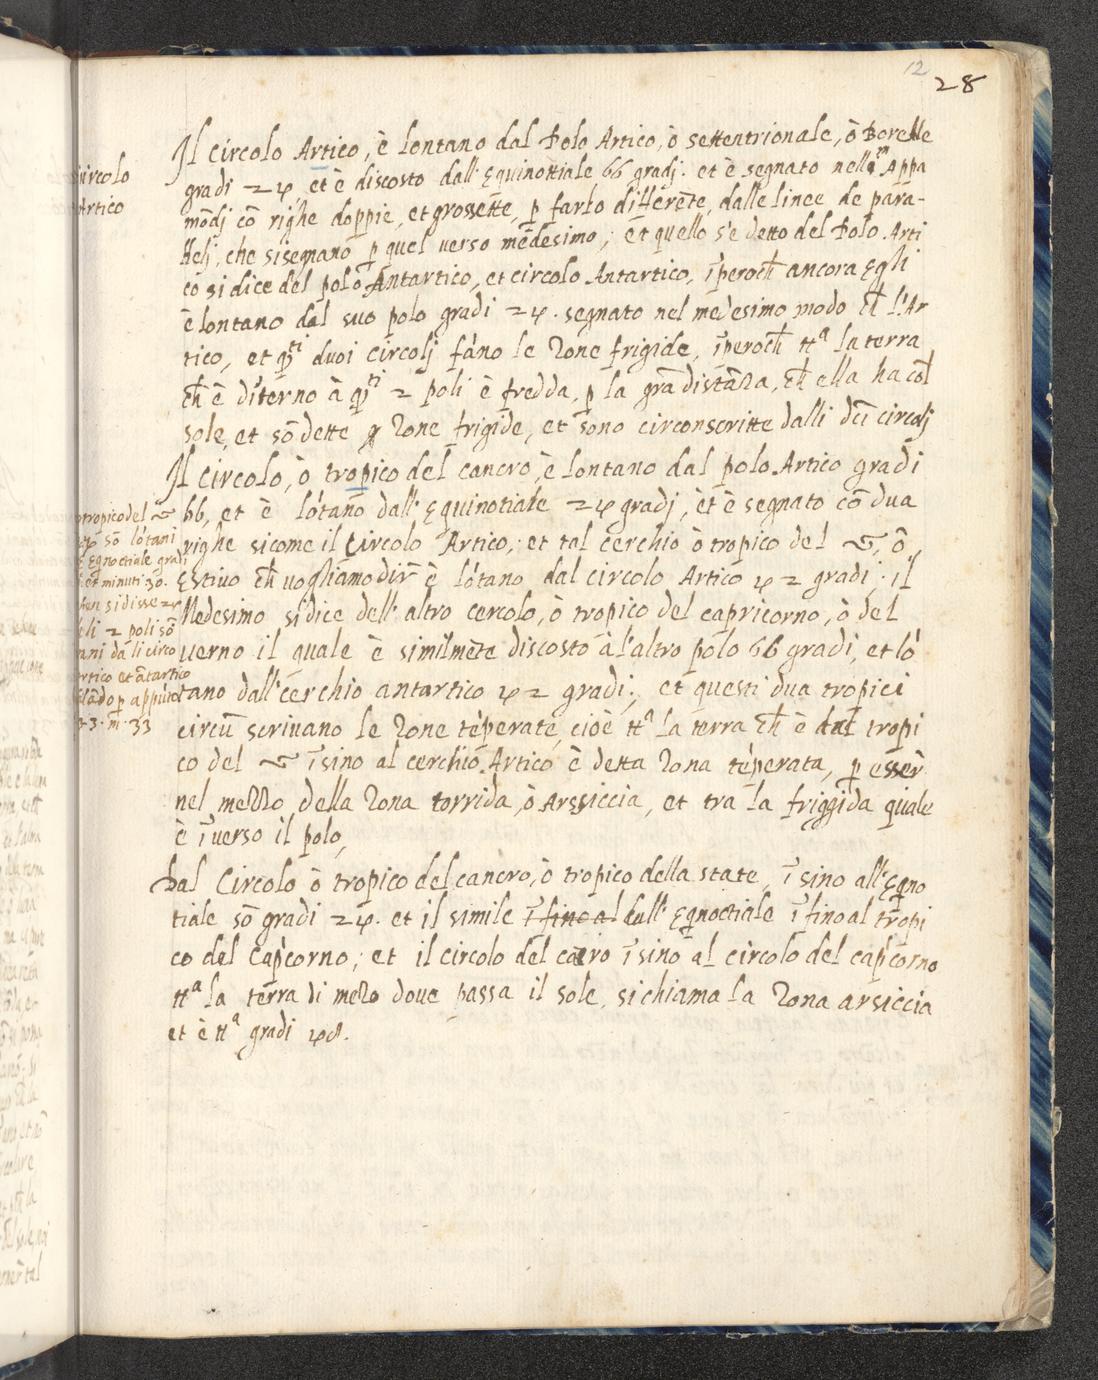 12
28
Il circolo Artico, è lontano dal Polo Artico, ò settentrionale, ò Borelle
gradi 24, et è discosto dall' Equinottiale 66 gradj. et è segnato nella Appa
mōdj cō righe doppie, et grossette, p farlo differēte, dalle linee de para-
llelj, che si segnano p quel verso mēdesimo; et quello s'è detto del Polo Arti
co si dice del polo Antartico, et circolo Antartico, īperoch̄ ancora Egli
è lontano dal suo polo gradi 24. segnato nel medesimo modo ch̄ l'Ar
tico, et q̄sti duoi circolj fāno le Zone frigide, īperoch̄ ttª la terra
ch̄ è dītorno à q̄sti 2 poli è fredda, p la grā distāza, ch̄ ella ha col
sole, et sō dette Zone frigide, et sono circonscritte dalli dci circolj
Il circolo, ò tropico del cancro, è lontano dal polo Artico gradi
66, et è lōtano dall' Equinotiale 24 gradj, et è segnato cō dua
righe sicome il Circolo Artico, et tal cerchio ò tropico del ♋, ò
Estivo ch̄ vogliamo dir̄ è lōtano dal circolo Artico 42 gradi; il
Medesimo si dice dell' altro cercolo, ò tropico del capricorno, ò del
verno il quale è similmēte discosto à l'altro polo 66 gradi, et lō
tano dall' cerchio antartico 42 gradi; et questi dua tropici
circū scrivano le Zone tēperate, cioè ttª la terra ch̄ è dal tropi
co del ♋ īsino al cerchio Artico è detta Zona tēperata, p esser
nel mezzo della Zona torrida, ò Arssiccia, et tra la friggida quale
è īverso il polo,
Dal Circolo ò tropico del cancro, ò tropico della state, īsino all' Eqno
tiale sō gradi 24. et il simile ī fino al dall' Eqnoctiale ī fino al tropi
co del Capcorno; et il circolo del cācro īsino al circolo del capcorno
ttª la terra di mezo dove passa il sole, si chiama la Zona arsiccia
et è ttª gradi 48.
circolo
Artico
tropico del ♋
sō lōtani
Eqnoctiale gradi
et minuti 30.
si disse 24
2 poli sō
dali circo
artico et ātartico
p appūto
23. m. 33